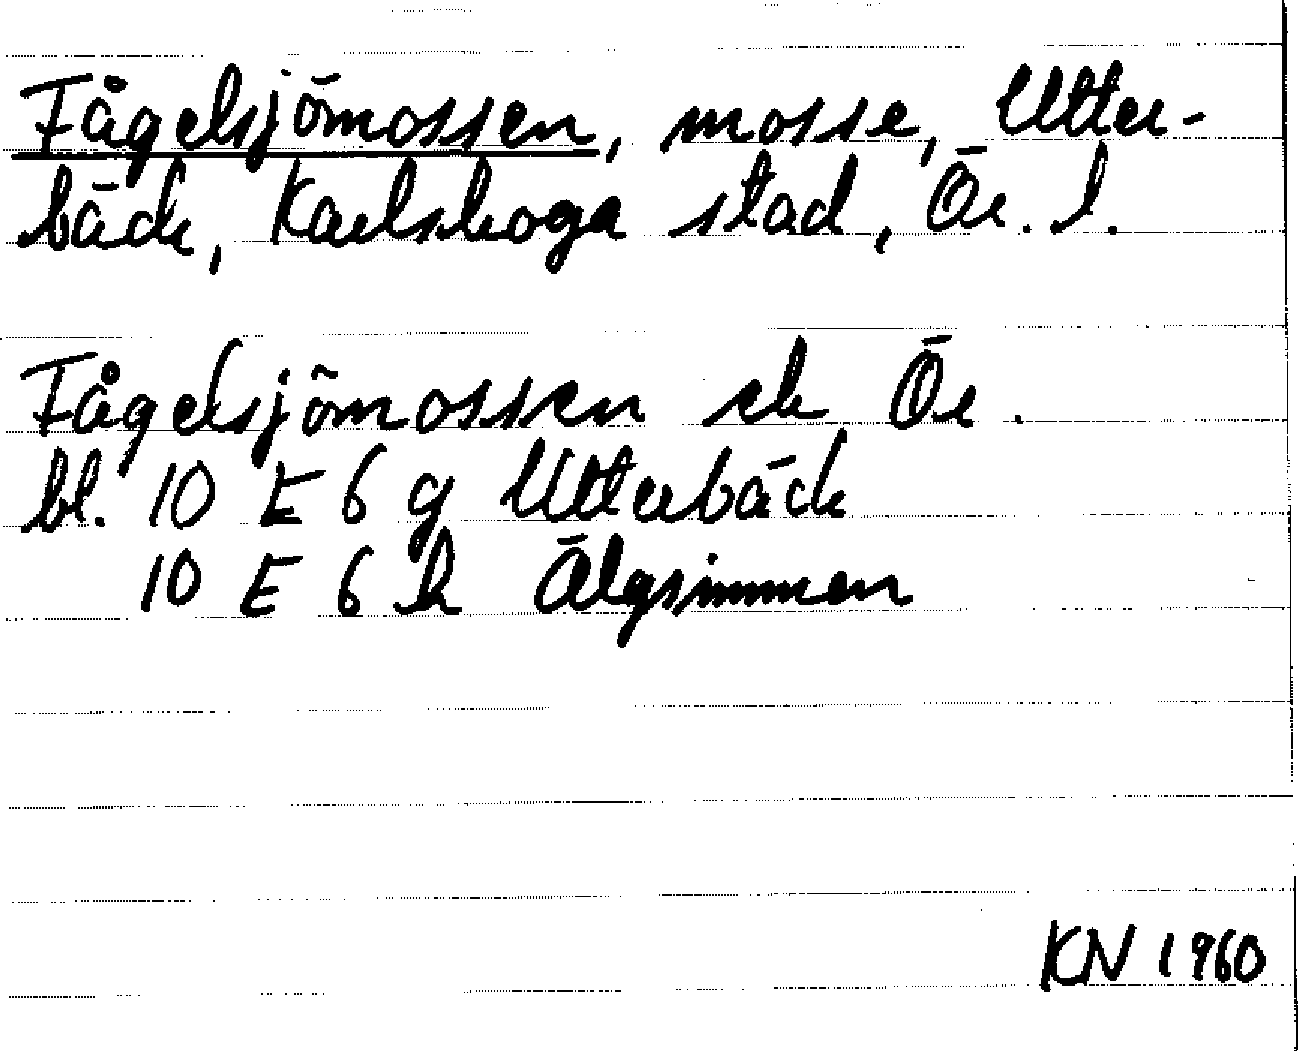 Fågelsjömossen, mosse, Utter-
bäck, Karlskoga stad, Ör. l.
Fågelsjömossen ek Ör.
bl. 10 E 6 g Utterbäck
10 E 6 h Älgsimmen
KN 1960